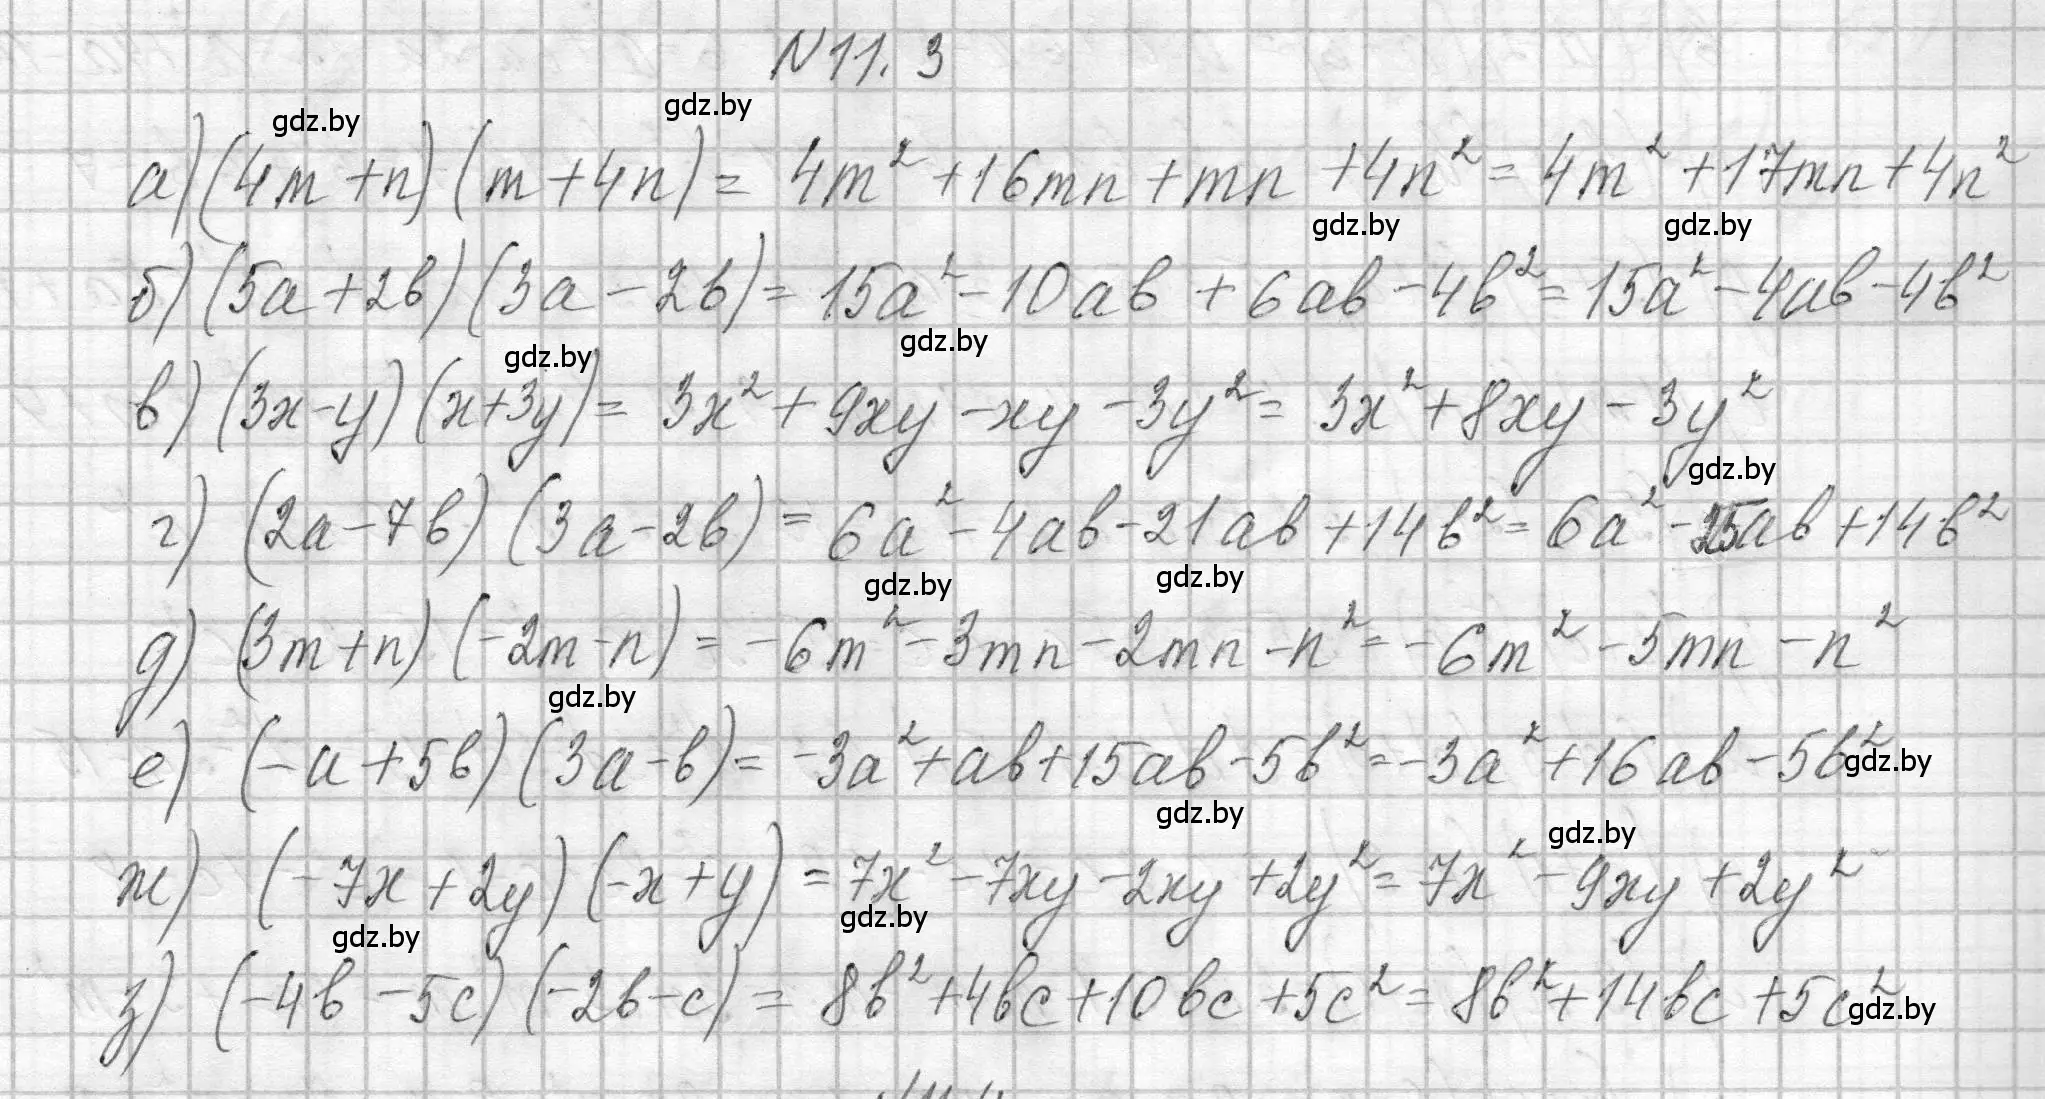 N 11. 3
gdz.by gdz.by
а) (4m + n) (m + 4n) = 4m² + 16mn + mn + 4n² = 4m² + 17mn + 4n²
gdz.by gdz.by
б) (5a + 2b) (3a - 2b) = 15a² - 10ab + 6ab - 4b² = 15a² - 4ab - 4b²
gdz.by gdz.by
в) (3x - y) (x + 3y) = 3x² + 9xy - xy - 3y² = 3x² + 8xy - 3y²
gdz.by
г) (2a - 7b) (3a - 2b) = 6a² - 4ab - 21ab + 14b² = 6a² - 25ab + 14b²
gdz.by gdz.by
д) (3m + n) (-2m - n) = -6m² - 3mn - 2mn - n² = -6m² - 5mn - n²
gdz.by
е) (-a + 5b) (3a - b) = -3a² + ab + 15ab - 5b² = -3a² + 16ab - 5b²
gdz.by
gdz.by gdz.by
ж) (-7x + 2y) (-x + y) = 7x² - 7xy - 2xy + 2y² = 7x² - 9xy + 2y²
gdz.by gdz.by
з) (-4b - 5c) (-2b - c) = 8b² + 4bc + 10bc + 5c² = 8b² + 14bc + 5c²
gdz.by